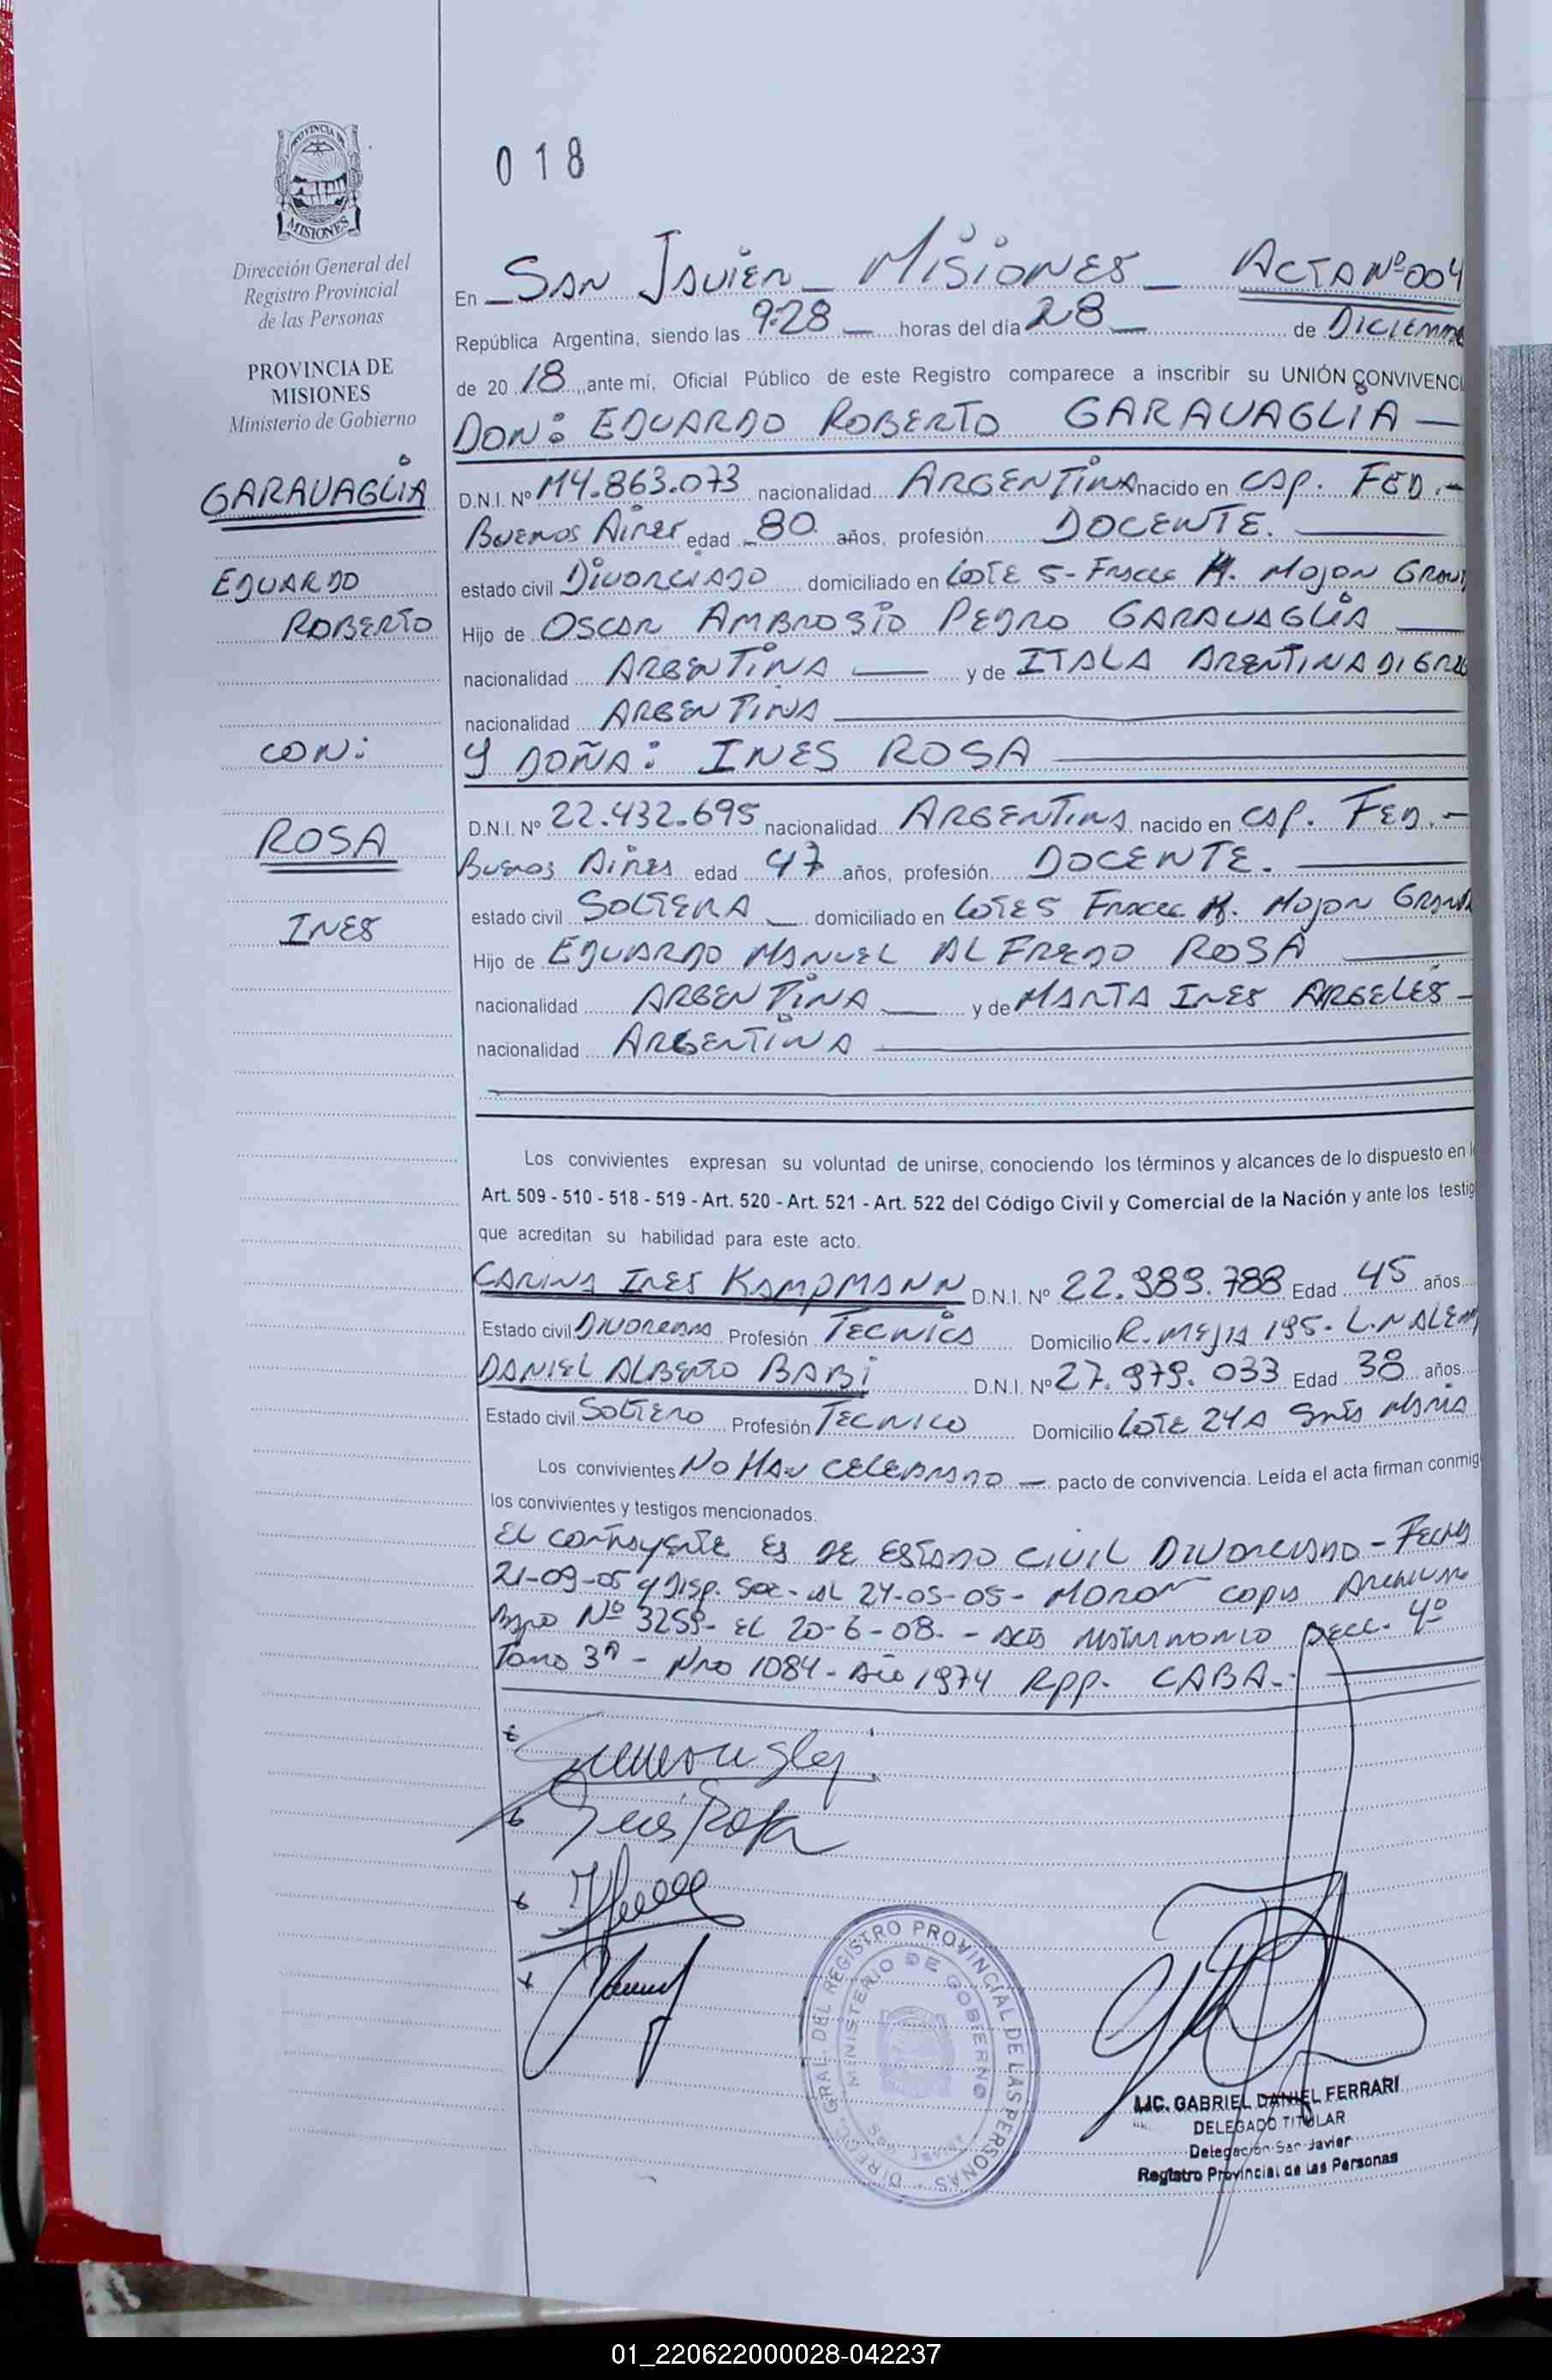 018
PROVINCIA DE
MISIONES
Dirección General del
Registro Provincial
de las Personas
PROVINCIA DE
MISIONES
Ministerio de Gobierno
GARAVAGLIA
EDUARDO
ROBERTO
CON:
ROSA
INES
En SAN JAVIER _ MISIONES _ ACTA Nº 004
República Argentina, siendo las 9:28 horas del día 28 de DICIEMBRE
de 20 18 ,ante mí, Oficial Público de este Registro comparece a inscribir su UNIÓN CONVIVENCI
DON: EDUARDO ROBERTO GARAVAGLIA
D.N.I. Nº M4.863.073 nacionalidad ARGENTINA nacido en CAP. FED.-
BUENOS AIRES edad 80 años, profesión DOCENTE.
estado civil DIVORCIADO domiciliado en LOTE 5- FRACC M. MOJON GRAND
Hijo de OSCAR AMBROSIO PEDRO GARAVAGLIA
nacionalidad ARGENTINA y de ITALA ARENTINA
nacionalidad ARGENTINA
Y DOÑA: INES ROSA
D.N.I. Nº 22.432.695 nacionalidad ARGENTINA nacido en CAP. FED.-
BUENOS AIRES edad 47 años, profesión DOCENTE.
estado civil SOLTERA domiciliado en LOTE 5 FRACC M. MOJON GRAND
Hijo de EDUARDO MANUEL ALFREDO ROSA
nacionalidad ARGENTINA y de MARTA INES ARGELES -
nacionalidad ARGENTINA
Los convivientes expresan su voluntad de unirse, conociendo los términos y alcances de lo dispuesto en l
Art. 509 - 510 - 518 - 519 - Art. 520 - Art. 521 - Art. 522 del Código Civil y Comercial de la Nación y ante los testig
que acreditan su habilidad para este acto.
CARINA INES KAMPMANN D.N.I. Nº 22.989.788 Edad 45 años
Estado civil DIVORCIADA Profesión TECNICA Domicilio R. MEJIA 195. L.N ALEM
DANIEL ALBERTO BABI D.N.I. Nº 27.979.033 Edad 38 años
Estado civil SOLTERO Profesión TECNICO Domicilio LOTE 24A SANTA MARIA
Los convivientes NO HAN CELEBRADO pacto de convivencia. Leída el acta firman conmig
los convivientes y testigos mencionados.
EL CONTRAYENTE ES DE ESTADO CIVIL DIVORCIADO - FECHA
21-09-05 y DISP. SOC - AL 24-05-05 - MORON COPIA ARCHIVADA
BAJO Nº 3259- EL 20-6-08. - ACTA MATRIMONIO SECC. 4º
TOMO 3º - NRO 1084 - AÑO 1974 RPP. CABA-
Ines Rosa
DIRECC. GRAL. DEL REGISTRO PROVINCIAL DE LAS PERSONAS
MINISTERIO DE GOBIERNO
LIC. GABRIEL DANIEL FERRARI
DELEGADO TITULAR
Delegación San Javier
Registro Provincial de las Personas
01_220622000028-042237